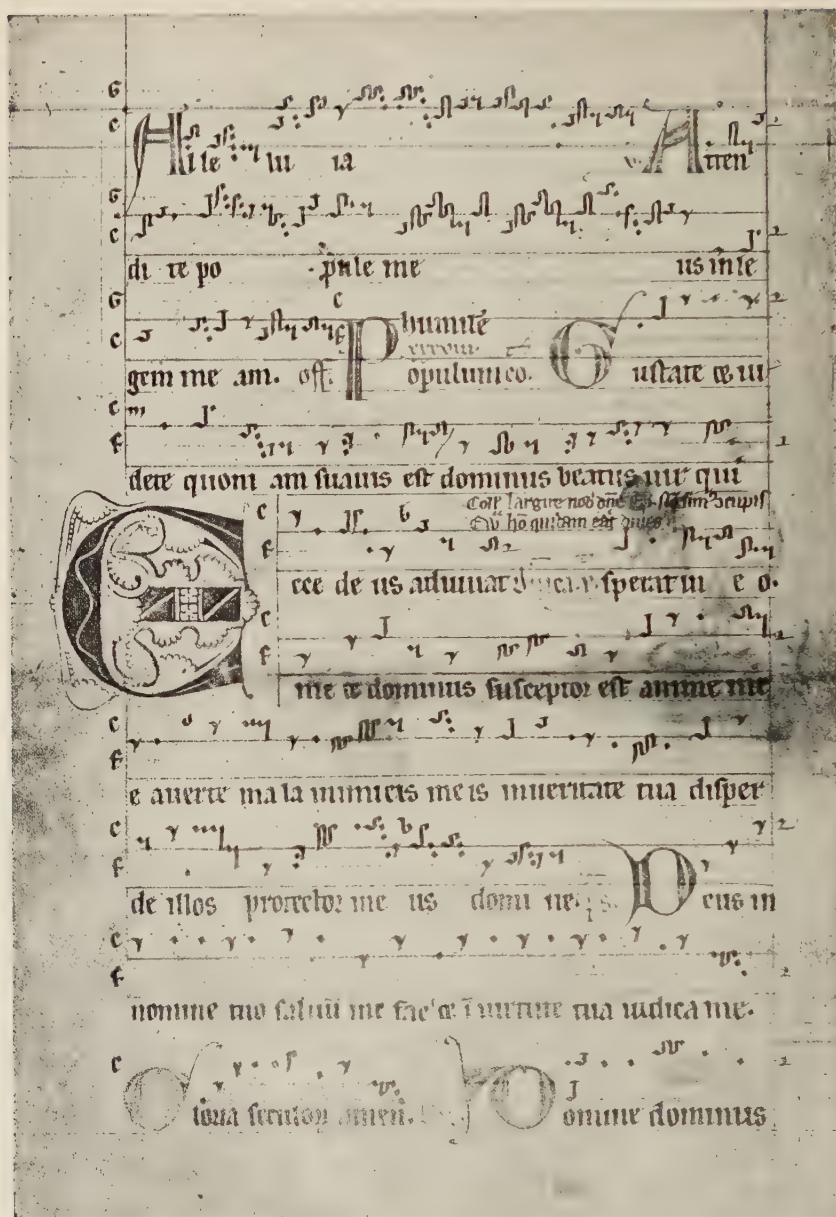 Alle lu ia v. Atten
di te po pule me us in le
gem me am. off. P humilē
opulum co. G ustate et ui
dete quoni am suauis est dominus beatus uir qui
sperat in e o.
E cce de us adiuuat
me et dominus susceptor est anime me
e auerte ma la inimicis me is in ueritate tua disper
de illos protector me us domi ne. ps. D eus in
nomine tuo saluū me fac et ī uirtute tua iudica me.
G loria seculoꝝ amen. D omine dominus